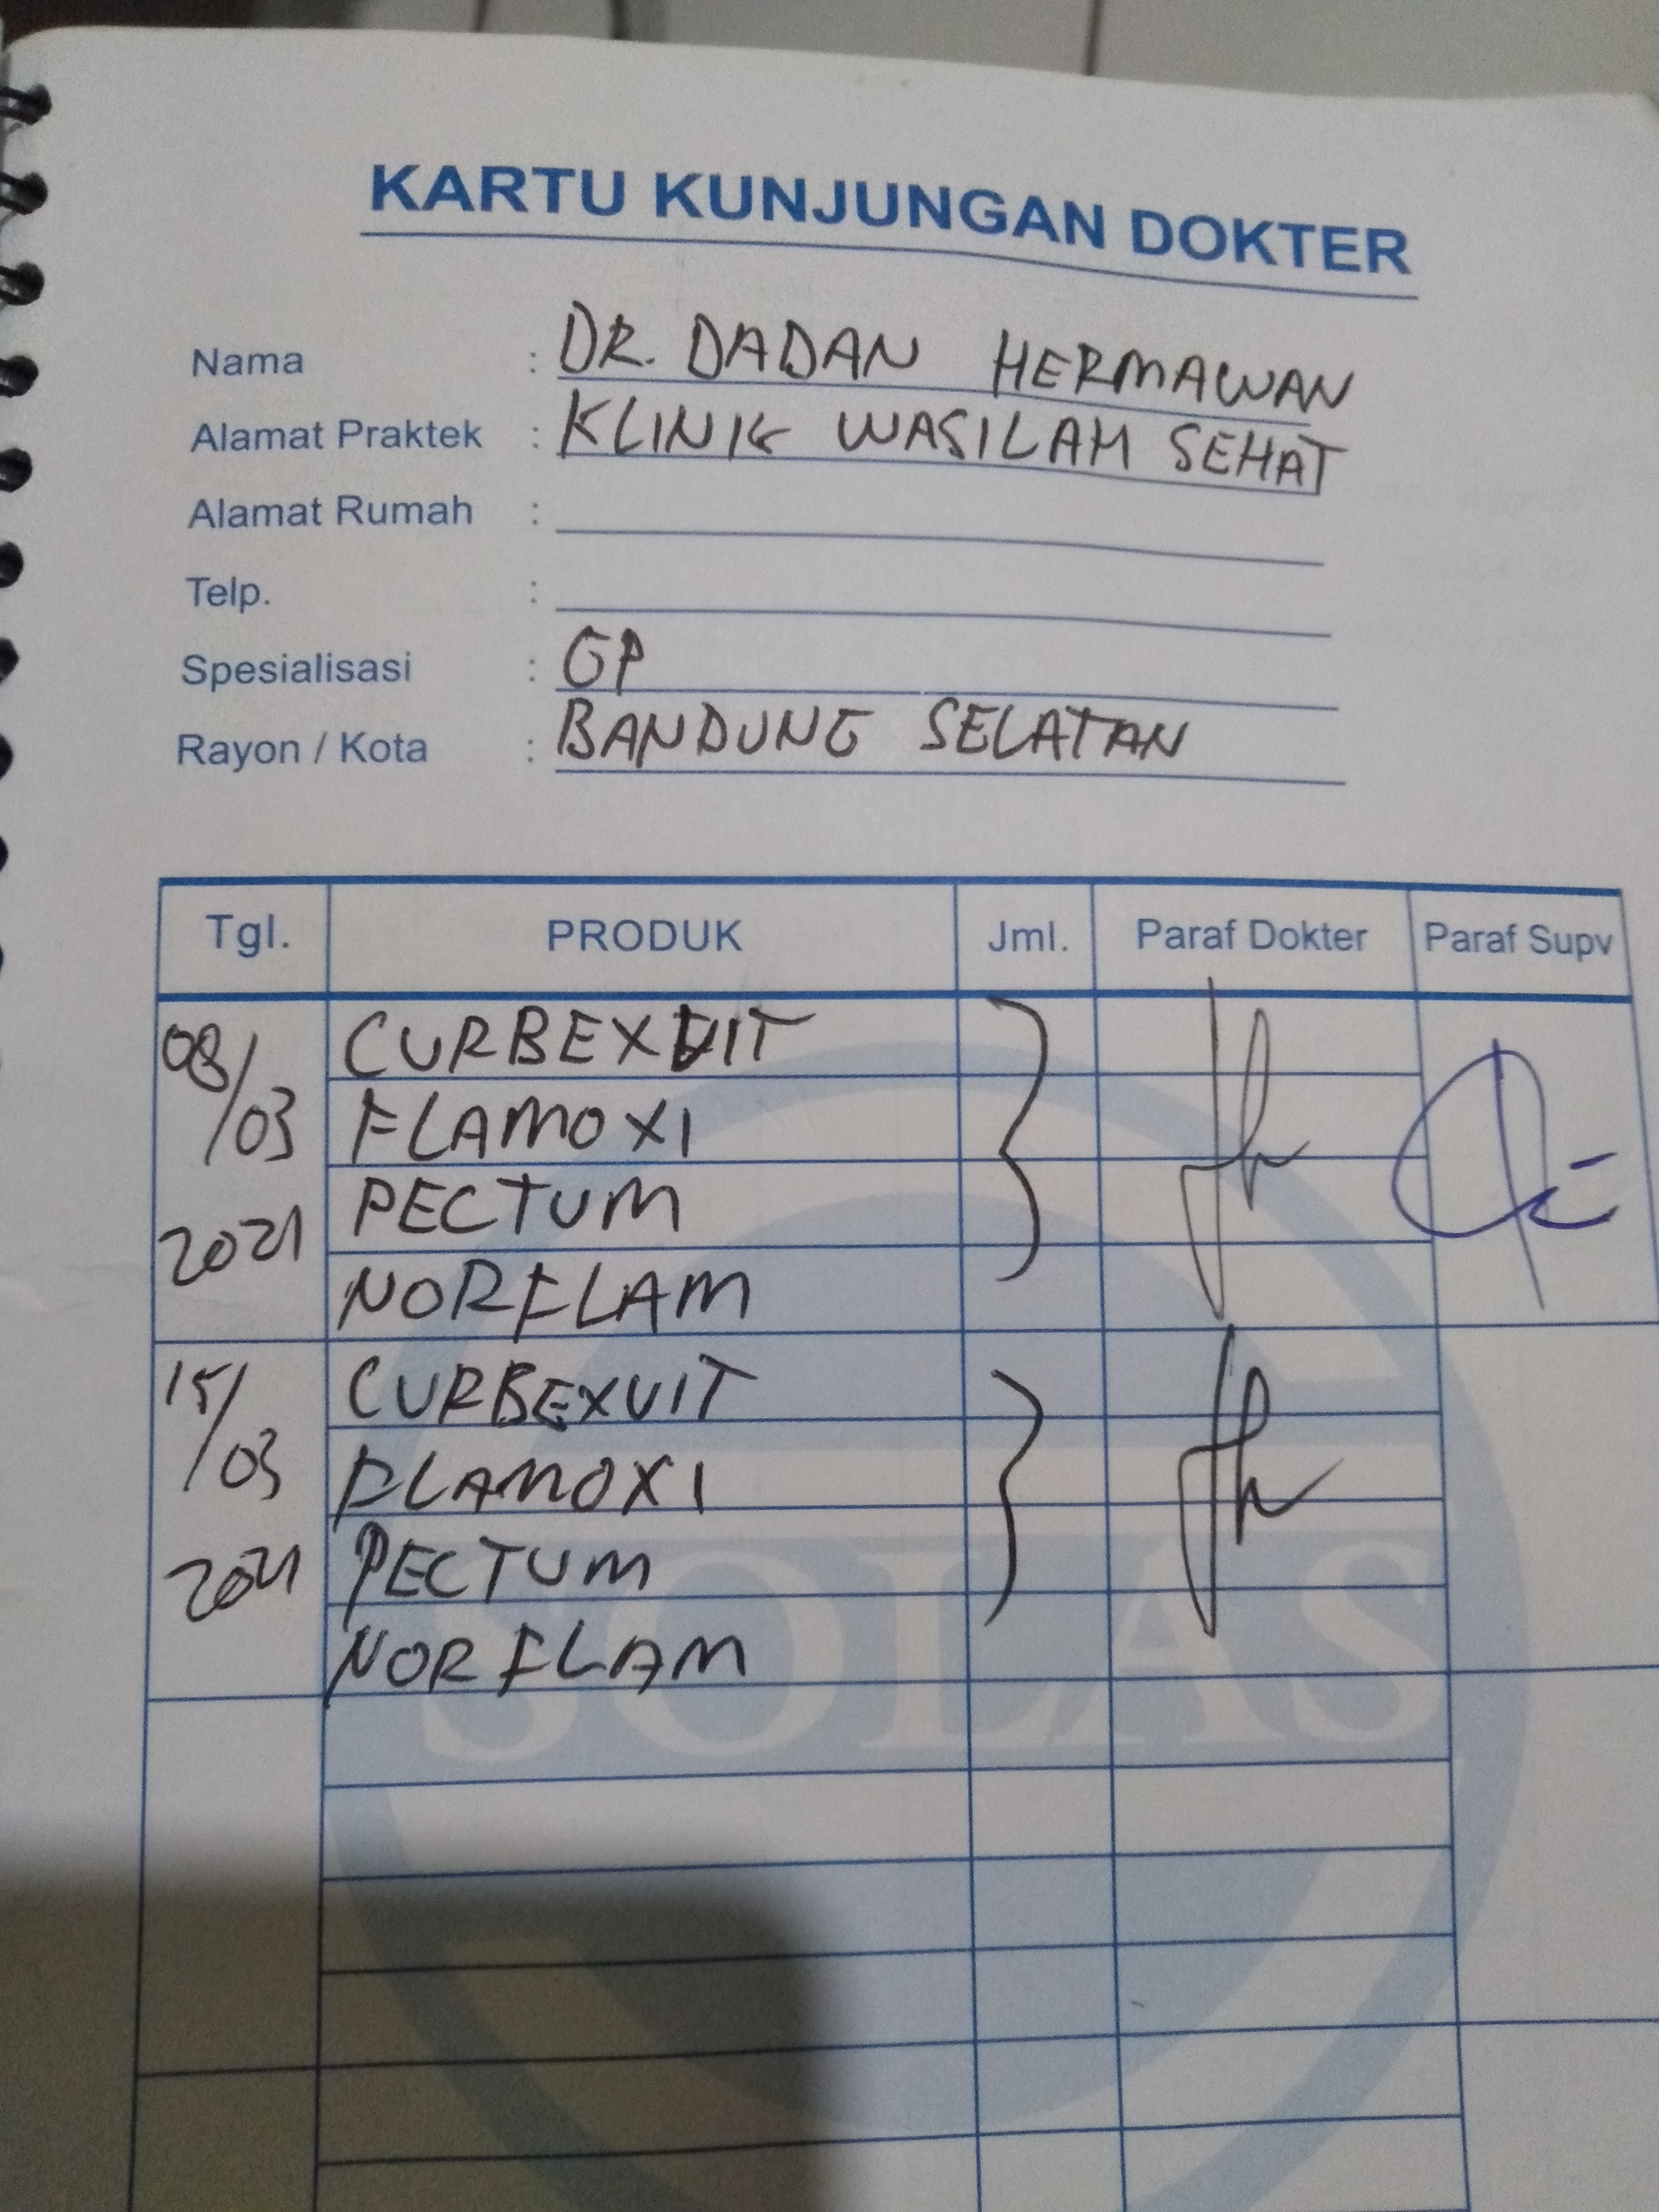 KARTU KUNJUNGAN DOKTER
Nama : DR. DADAN HERMAWAN
Alamat Praktek : KLINIK WASILAH SEHAT
Alamat Rumah :
Telp. :
Spesialisasi : GP
Rayon / Kota : BANDUNG SELATAN
Tgl. PRODUK Jml. Paraf Dokter Paraf Supv
08/03 2021 CURBEXVIT
FLAMOXI
PECTUM
NORFLAM
15/03 2021 CURBEXVIT
FLAMOXI
PECTUM
NORFLAM
SOLAS